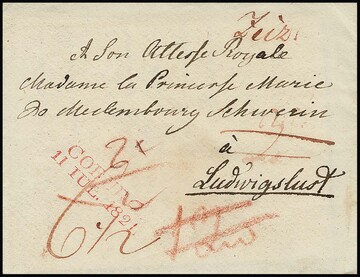 Zeiz
A Son Altesse Royale
Madame la Princesse Marie
de Mecklembourg Schwerin
à
Ludwigslust
11 IUL. 182
6 1/2